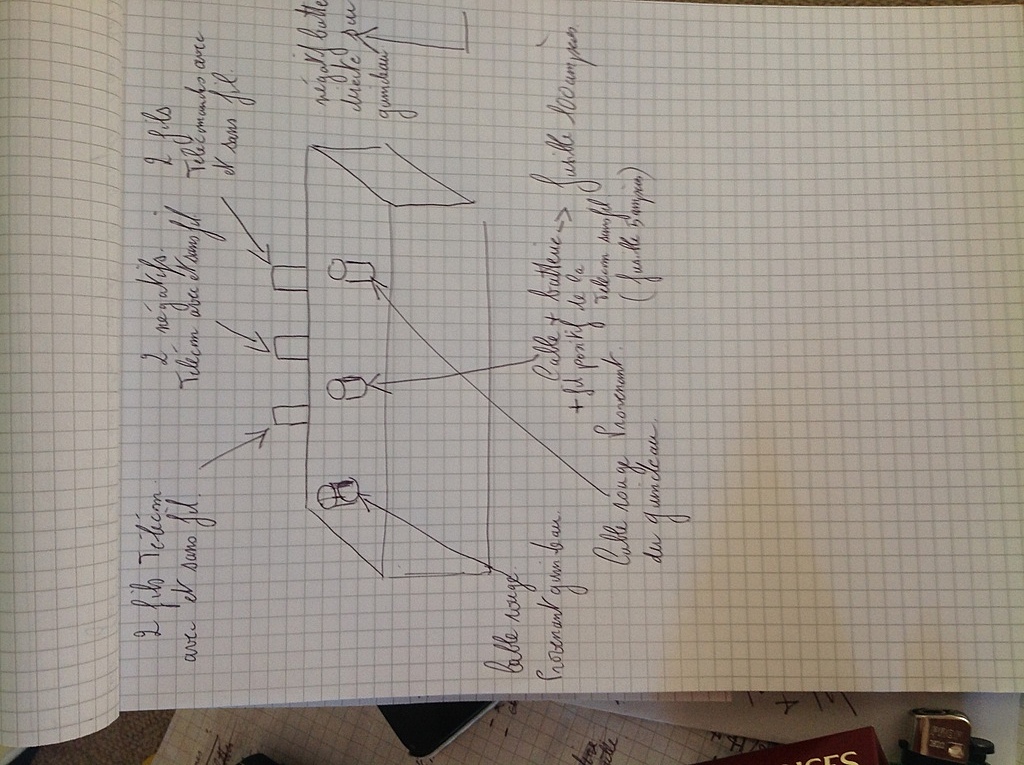 2 fils Télécom.
avec et sans fil.
2 négatifs.
Télécom avec et sans fil
2 fils
Télécommandes avec
et sans fil.
négatif batte
directe sur
guindeau
Cable rouge
Provenant guindeau.
Cable + batterie -> fusible 100 ampères
+ fil positif de la
Télécom sans fil
(fusible 5 ampères)
Cable rouge Provenant.
du guindeau